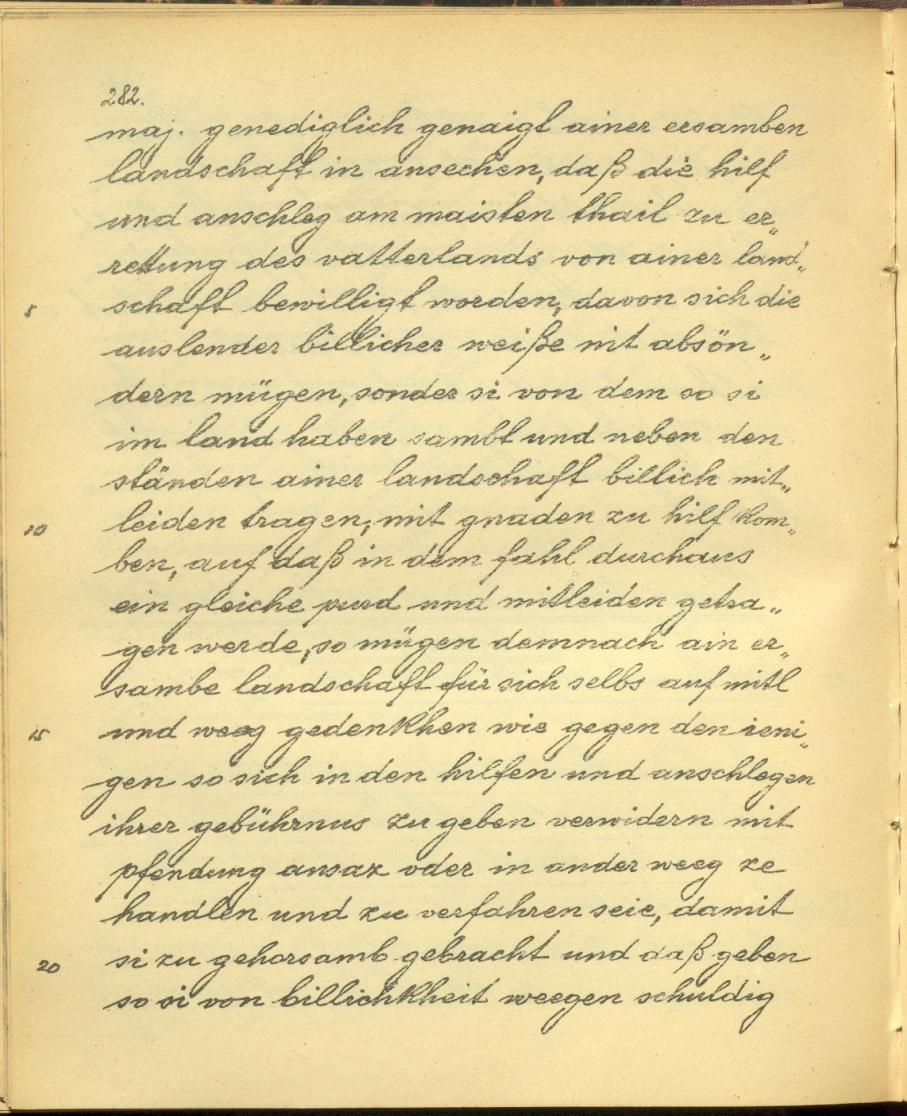 282.
maj. genediglich genaigt ainer ersamben
landschaft in ansechen, daß die hilf
und anschleg am maisten thail zu er„
rettung des vatterlands von ainer land„
5 schaft bewilligt worden, davon sich die
auslender billicher weiße nit absön„
dern mügen, sonder si von dem so si
im land haben sambt und neben den
ständen ainer landschaft billich mit„
10 leiden tragen, mit gnaden zu hilf kom„
ben, auf daß in dem fahl durchaus
ein gleiche purd und mitleiden getra„
gen werde, so mügen demnach ain er„
sambe landschaft für sich selbs auf mitl
15 und weeg gedenkhen wie gegen den ieni„
gen so sich in den hilfen und anschlegen
ihrer gebührnus zu geben verwidern mit
pfendung ansaz oder in ander weeg ze
handlen und zu verfahren seie, damit
20 si zu gehorsamb gebracht und daß geben
so si von billichkheit weegen schuldig